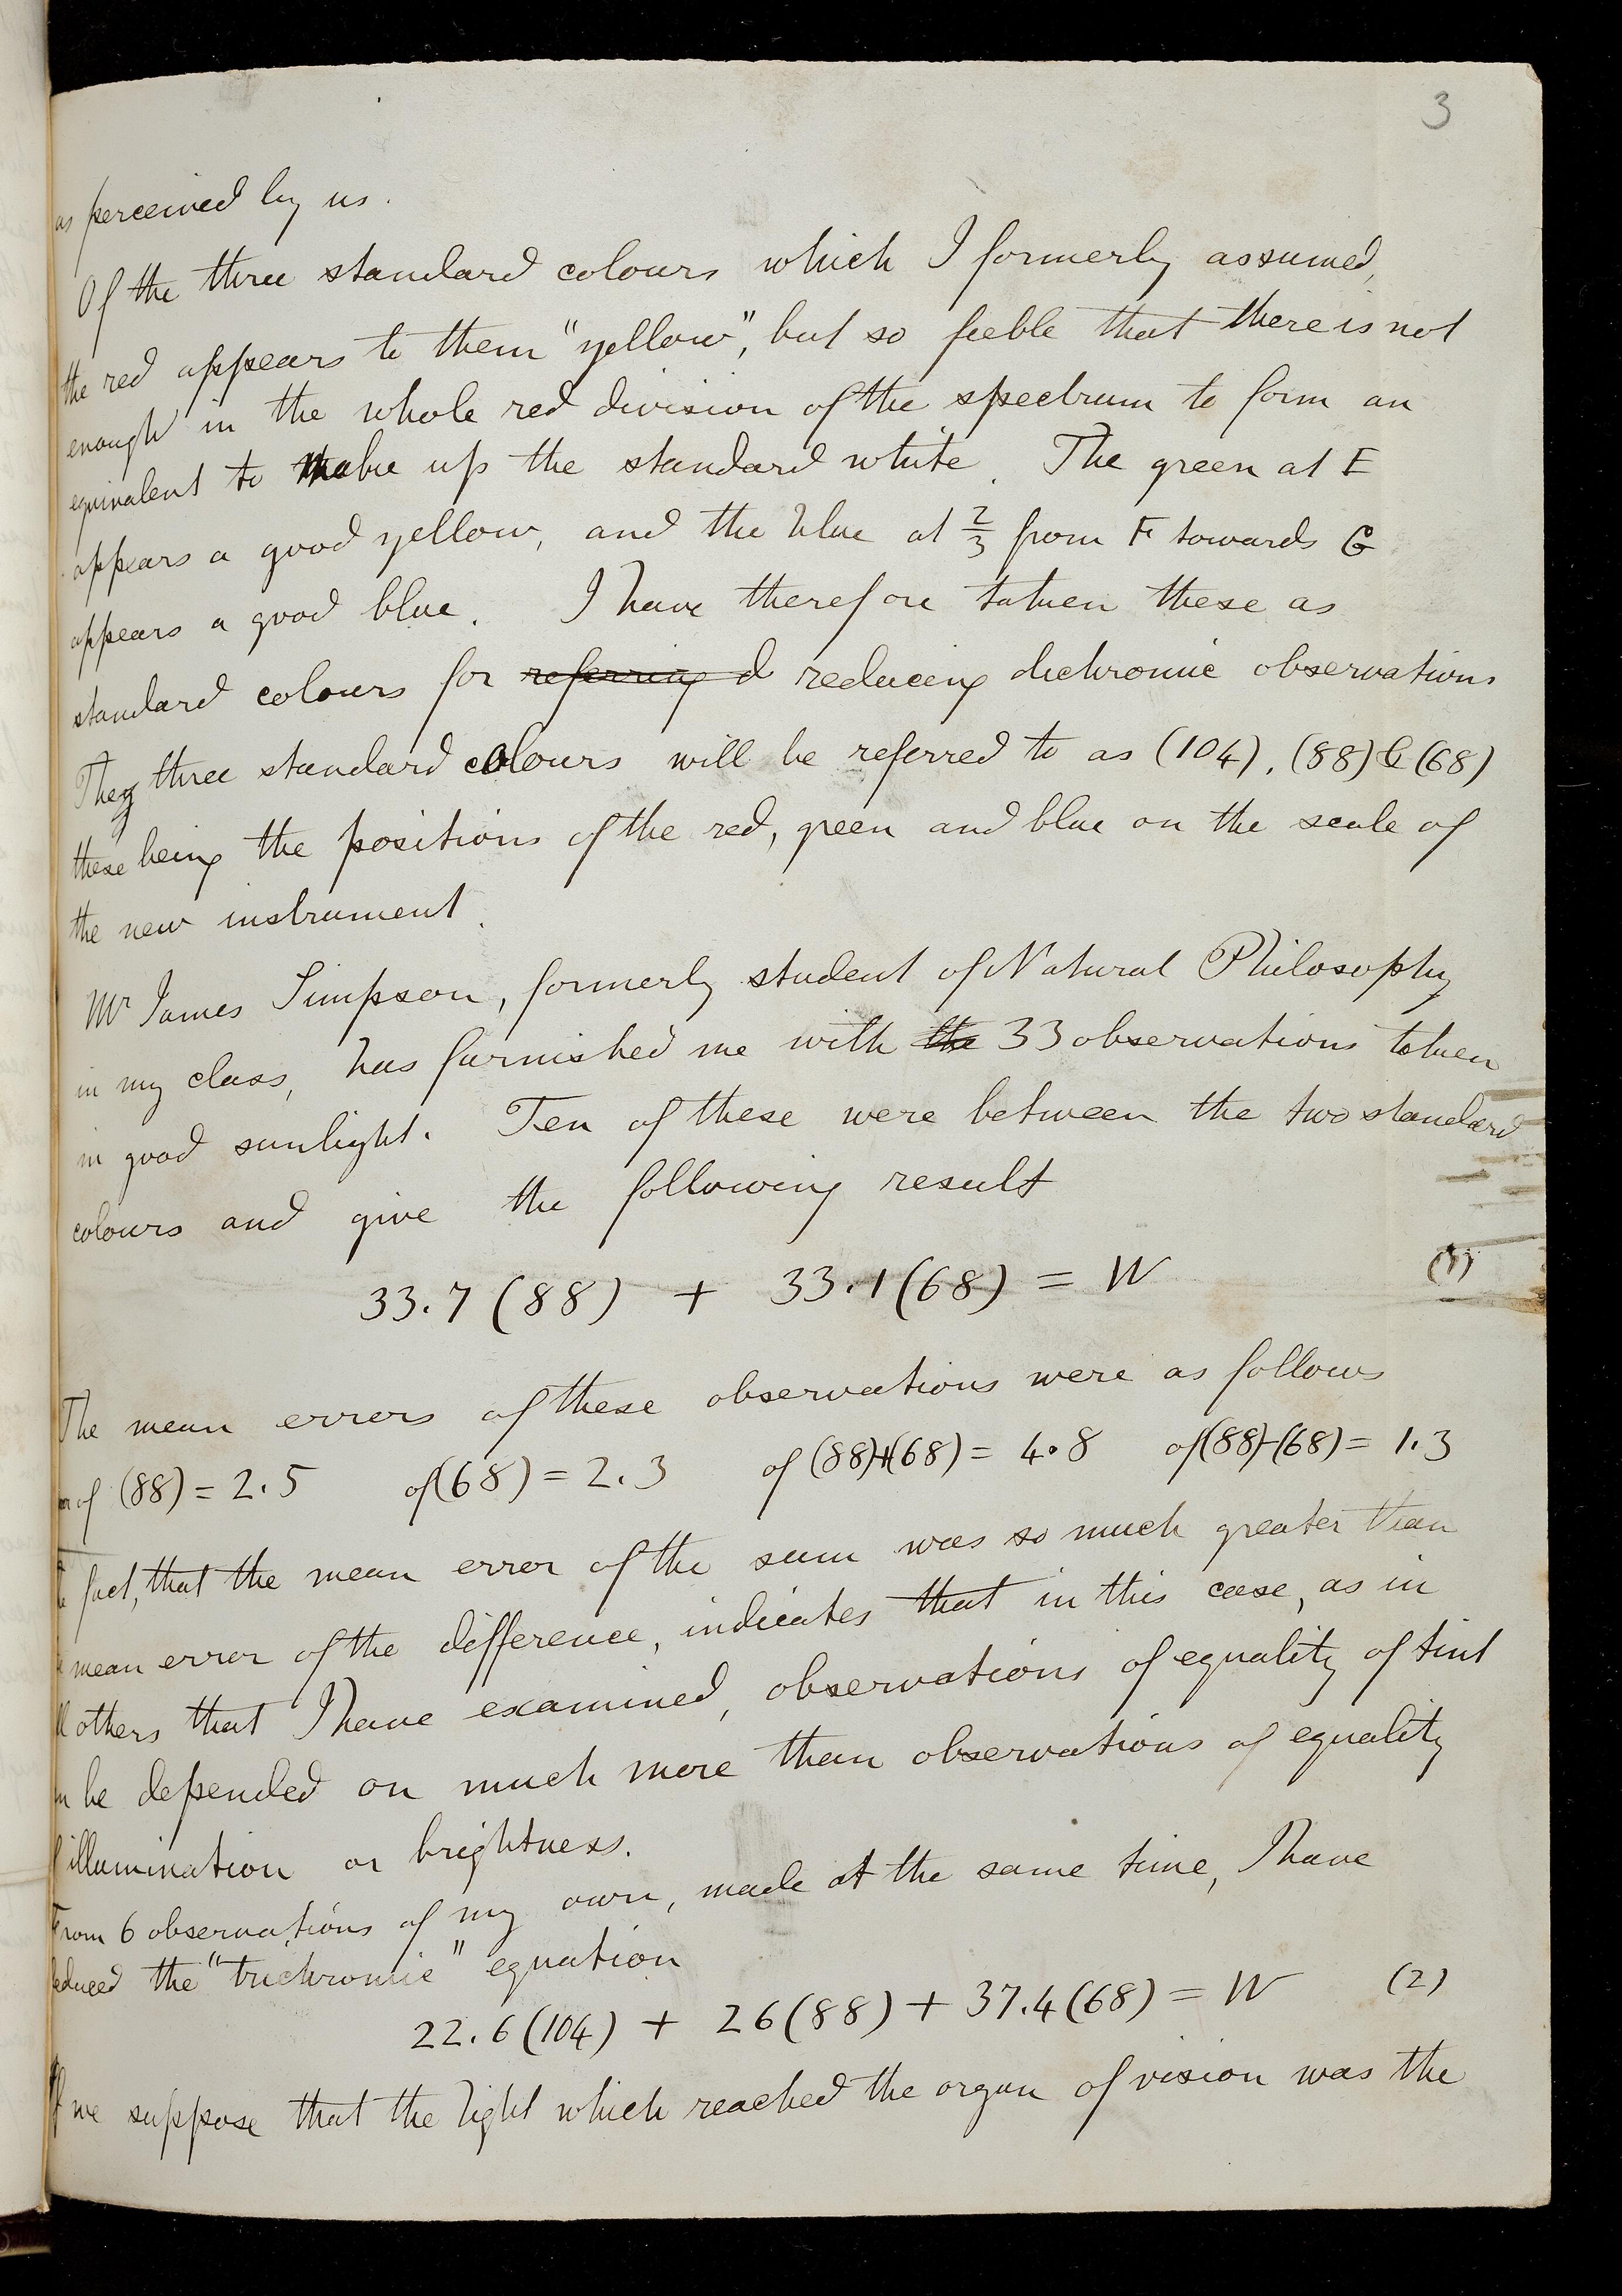 3
as perceived by us.
Of the three standard colours which I formerly assumed,
the red appears to them "yellow", but so feeble that there is not
enough in the whole red division of the spectrum to form an
equivalent to make up the standard white. The green at E
appears a good yellow, and the blue at 2/3 from F towards G
appears a good blue. I have therefore taken these as
standard colours for referring d reducing dichromic observations
They three standard colours will be referred to as (104), (88) & (68)
these being the positions of the red, green and blue on the scale of
the new instrument.
Mr James Simpson, formerly student of Natural Philosophy
in my class, has furnished me with the 33 observations taken
in good sunlight. Ten of these were between the two standard
colours and give the following result
33.7 (88) + 33.1 (68) = W (1)
The mean errors of these observations were as follows
of (88) = 2.5 of (68) = 2.3 of (88)+(68) = 4.8 of (88)-(68) = 1.3
fact, that the mean error of the sum was so much greater than
mean error of the difference, indicates that in this case, as in
ll others that I have examined, observations of equality of tint
n be depended on much more than observations of equality
f illumination or brightness.
From 6 observations of my own, made at the same time, I have
deduced the "trichromic" equation
22.6 (104) + 26 (88) + 37.4 (68) = W (2)
If we suppose that the light which reached the organ of vision was the